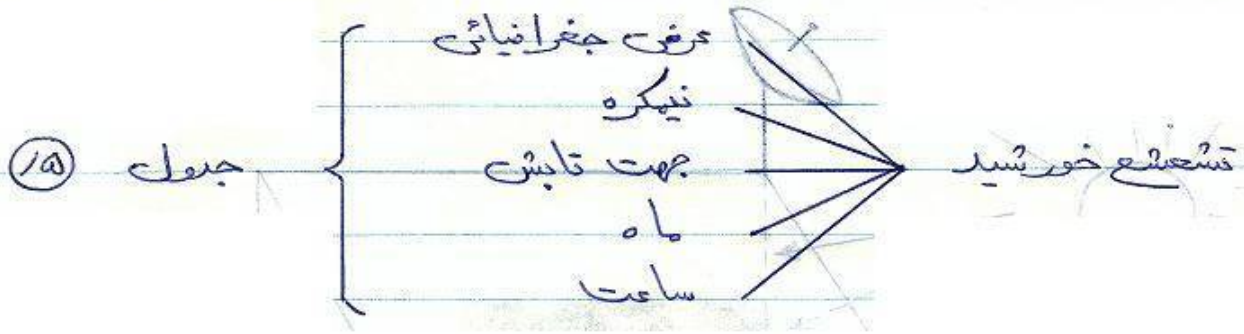 تشعشع خورشید
عرض جغرافیائی
نیمکره
جهت تابش
ماه
ساعت
جدول